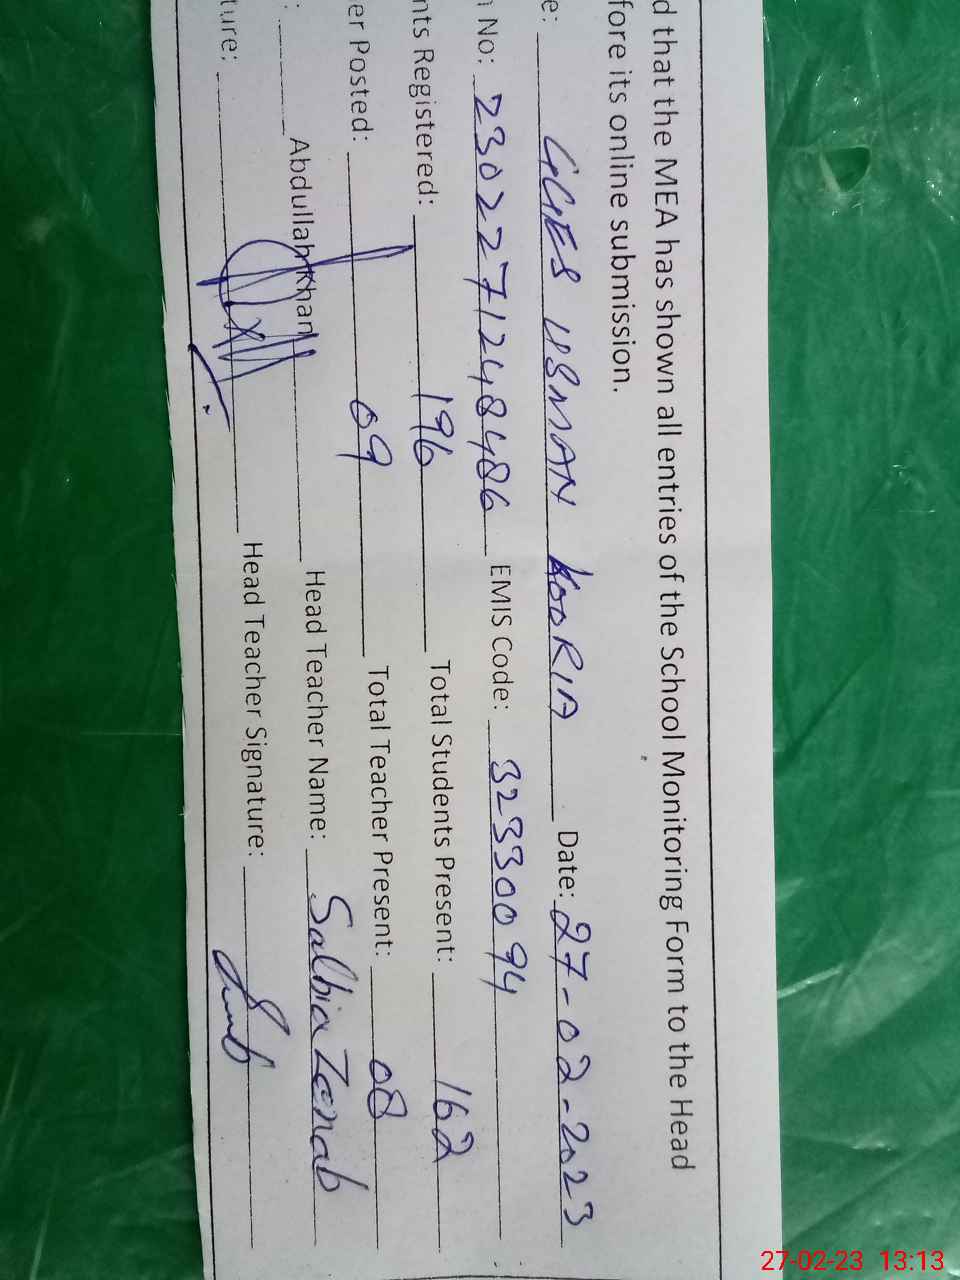 d that the MEA has shown all entries of the School Monitoring Form to the Head
fore its online submission.
e: GGES USMAN KOORIA Date: 27-02-2023
n No: 2302271248486 EMIS Code: 32330094
nts Registered: 196 Total Students Present: 162
er Posted: 09 Total Teacher Present: 08
: Abdullah Khan Head Teacher Name: Salbia Zanab
ture: Head Teacher Signature:
27-02-23 13:13